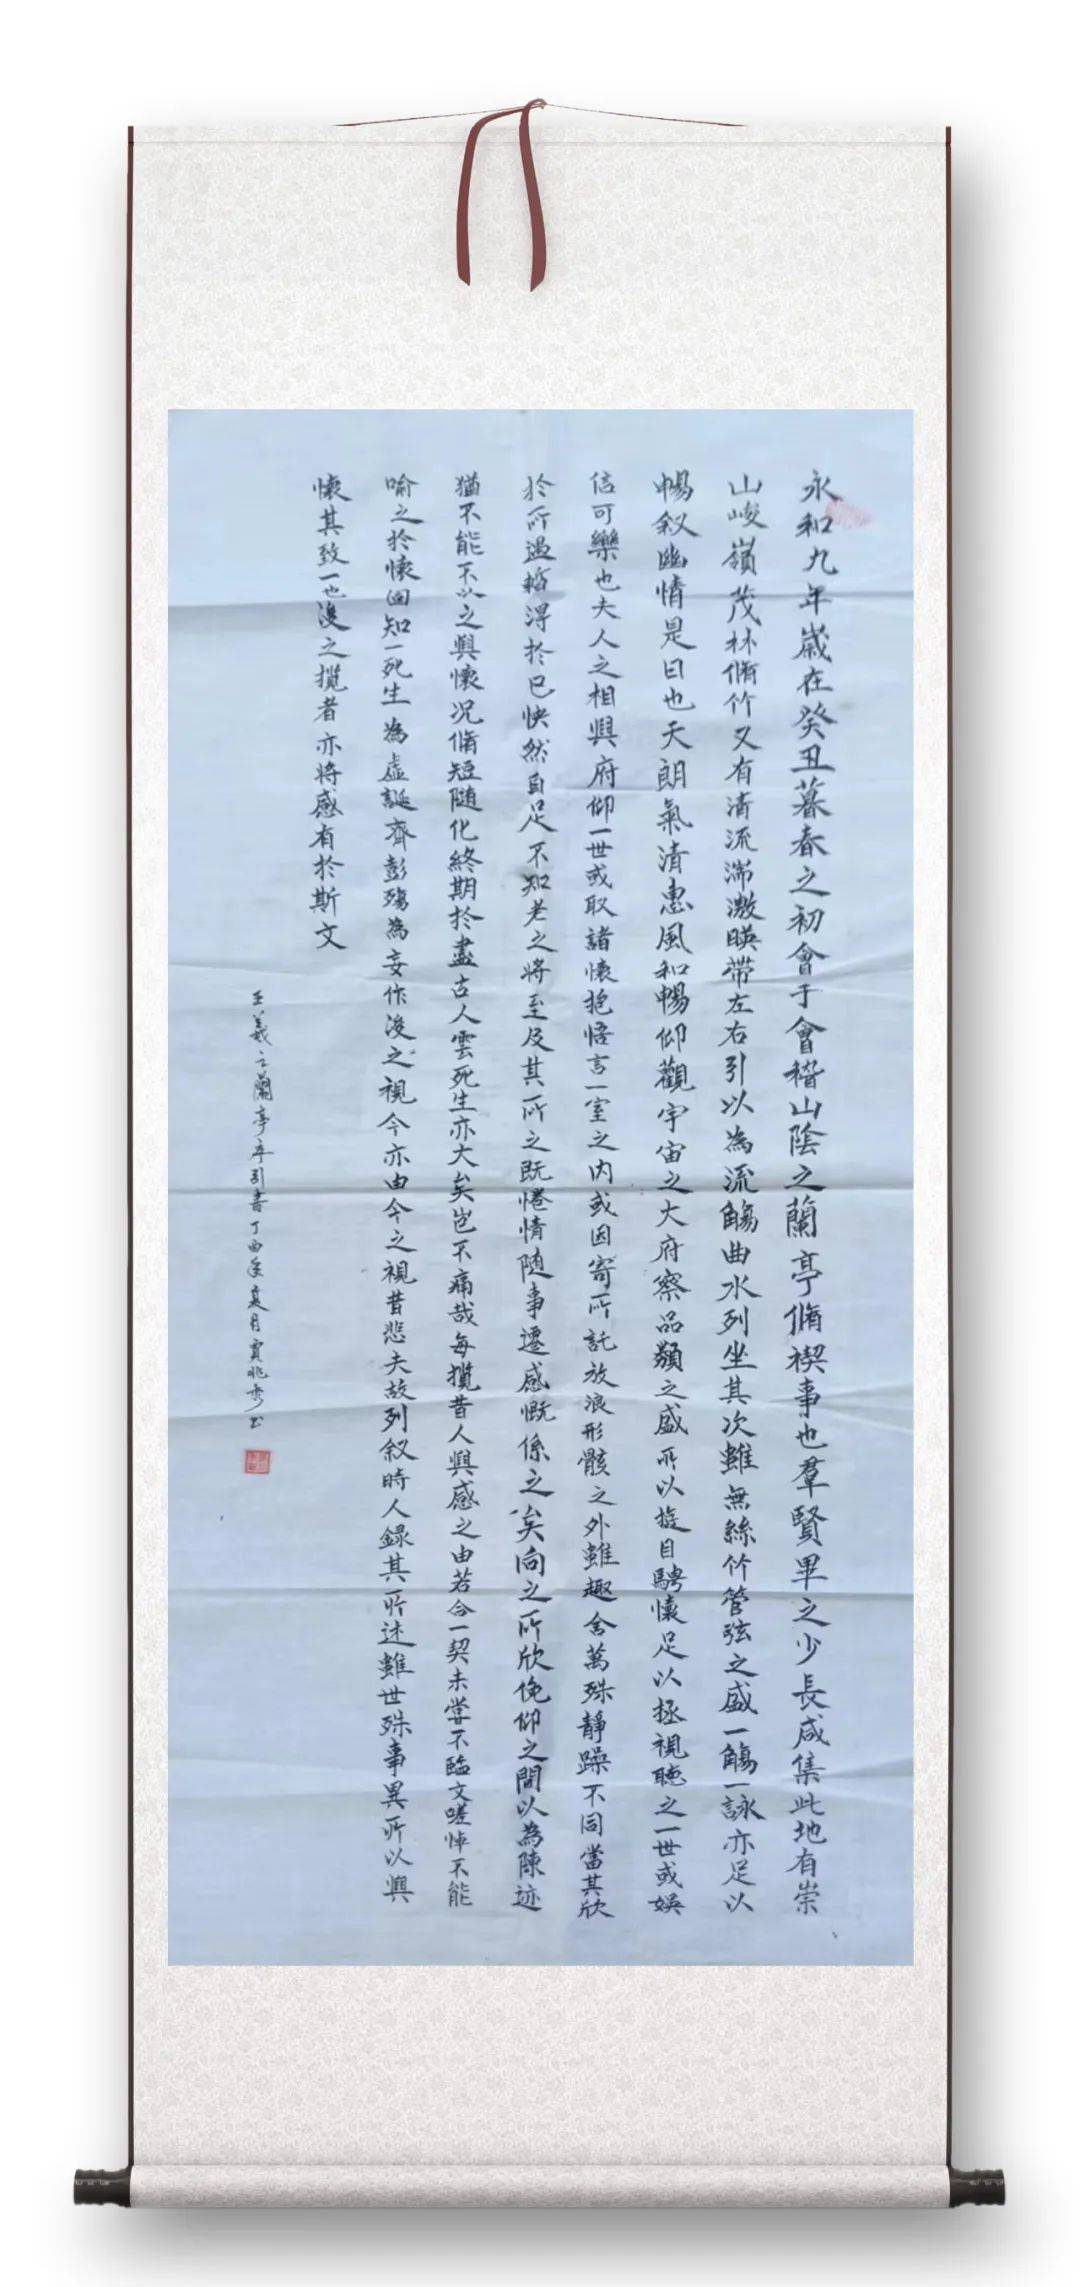 永和九年歲在癸丑暮春之初會于會稽山陰之蘭亭脩禊事也羣賢畢之少長咸集此地有崇
山峻嶺茂林脩竹又有清流湍激暎帶左右引以為流觴曲水列坐其次雖無絲竹管弦之盛一觴一詠亦足以
暢敘幽情是日也天朗氣清惠風和暢仰觀宇宙之大府察品類之盛所以遊目騁懷足以極視聽之一世或娛
信可樂也夫人之相與府仰一世或取諸懷抱悟言一室之內或因寄所託放浪形骸之外雖趣舍萬殊靜躁不同當其欣
於所遇暫得於已怏然自足不知老之將至及其所之既惓情隨事遷感慨係之矣向之所欣俛仰之間以為陳迹
猶不能不以之興懷况脩短隨化終期於盡古人雲死生亦大矣豈不痛哉每攬昔人興感之由若合一契未嘗不臨文嗟悼不能
喻之於懷固知一死生為虛誕齊彭殤為妄作後之視今亦由今之視昔悲夫故列叙時人錄其所述雖世殊事異所以興
懷其致一也後之攬者亦將感有於斯文
王羲之蘭亭序引書丁酉年夏月賈兆秀書